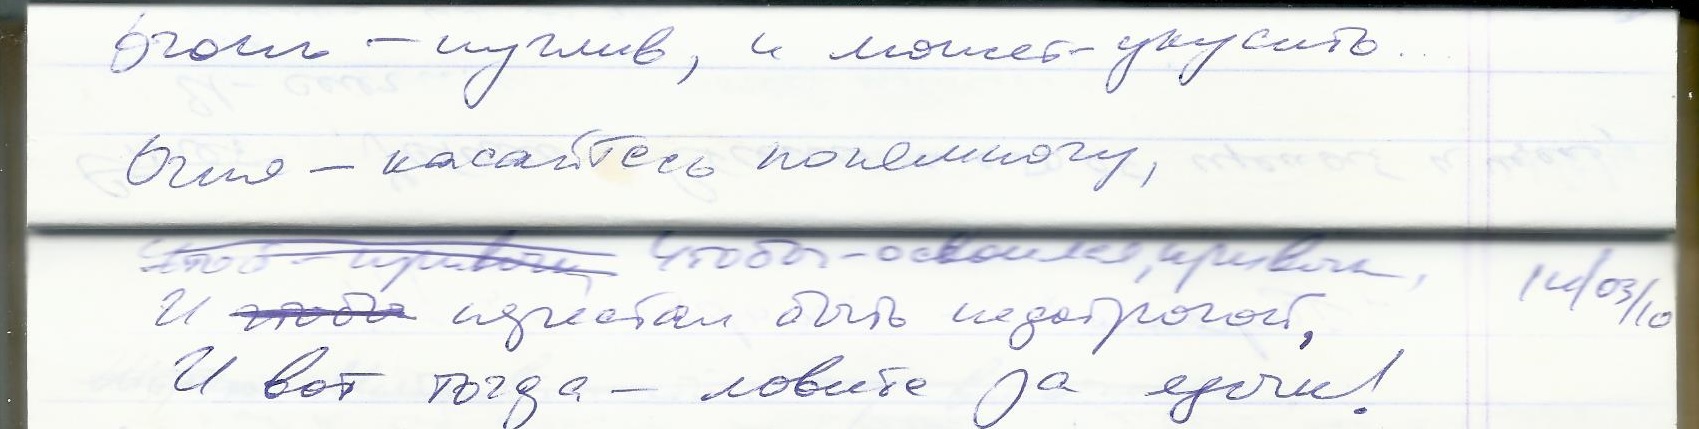 Огонь – пуглив, и может – укусить...
Огня – касайтесь понемногу,
Чтоб – привык, Чтобы – освоился, привык, 14/03/10
И чтобы перестал быть недотрогой,
И вот тогда – ловите за